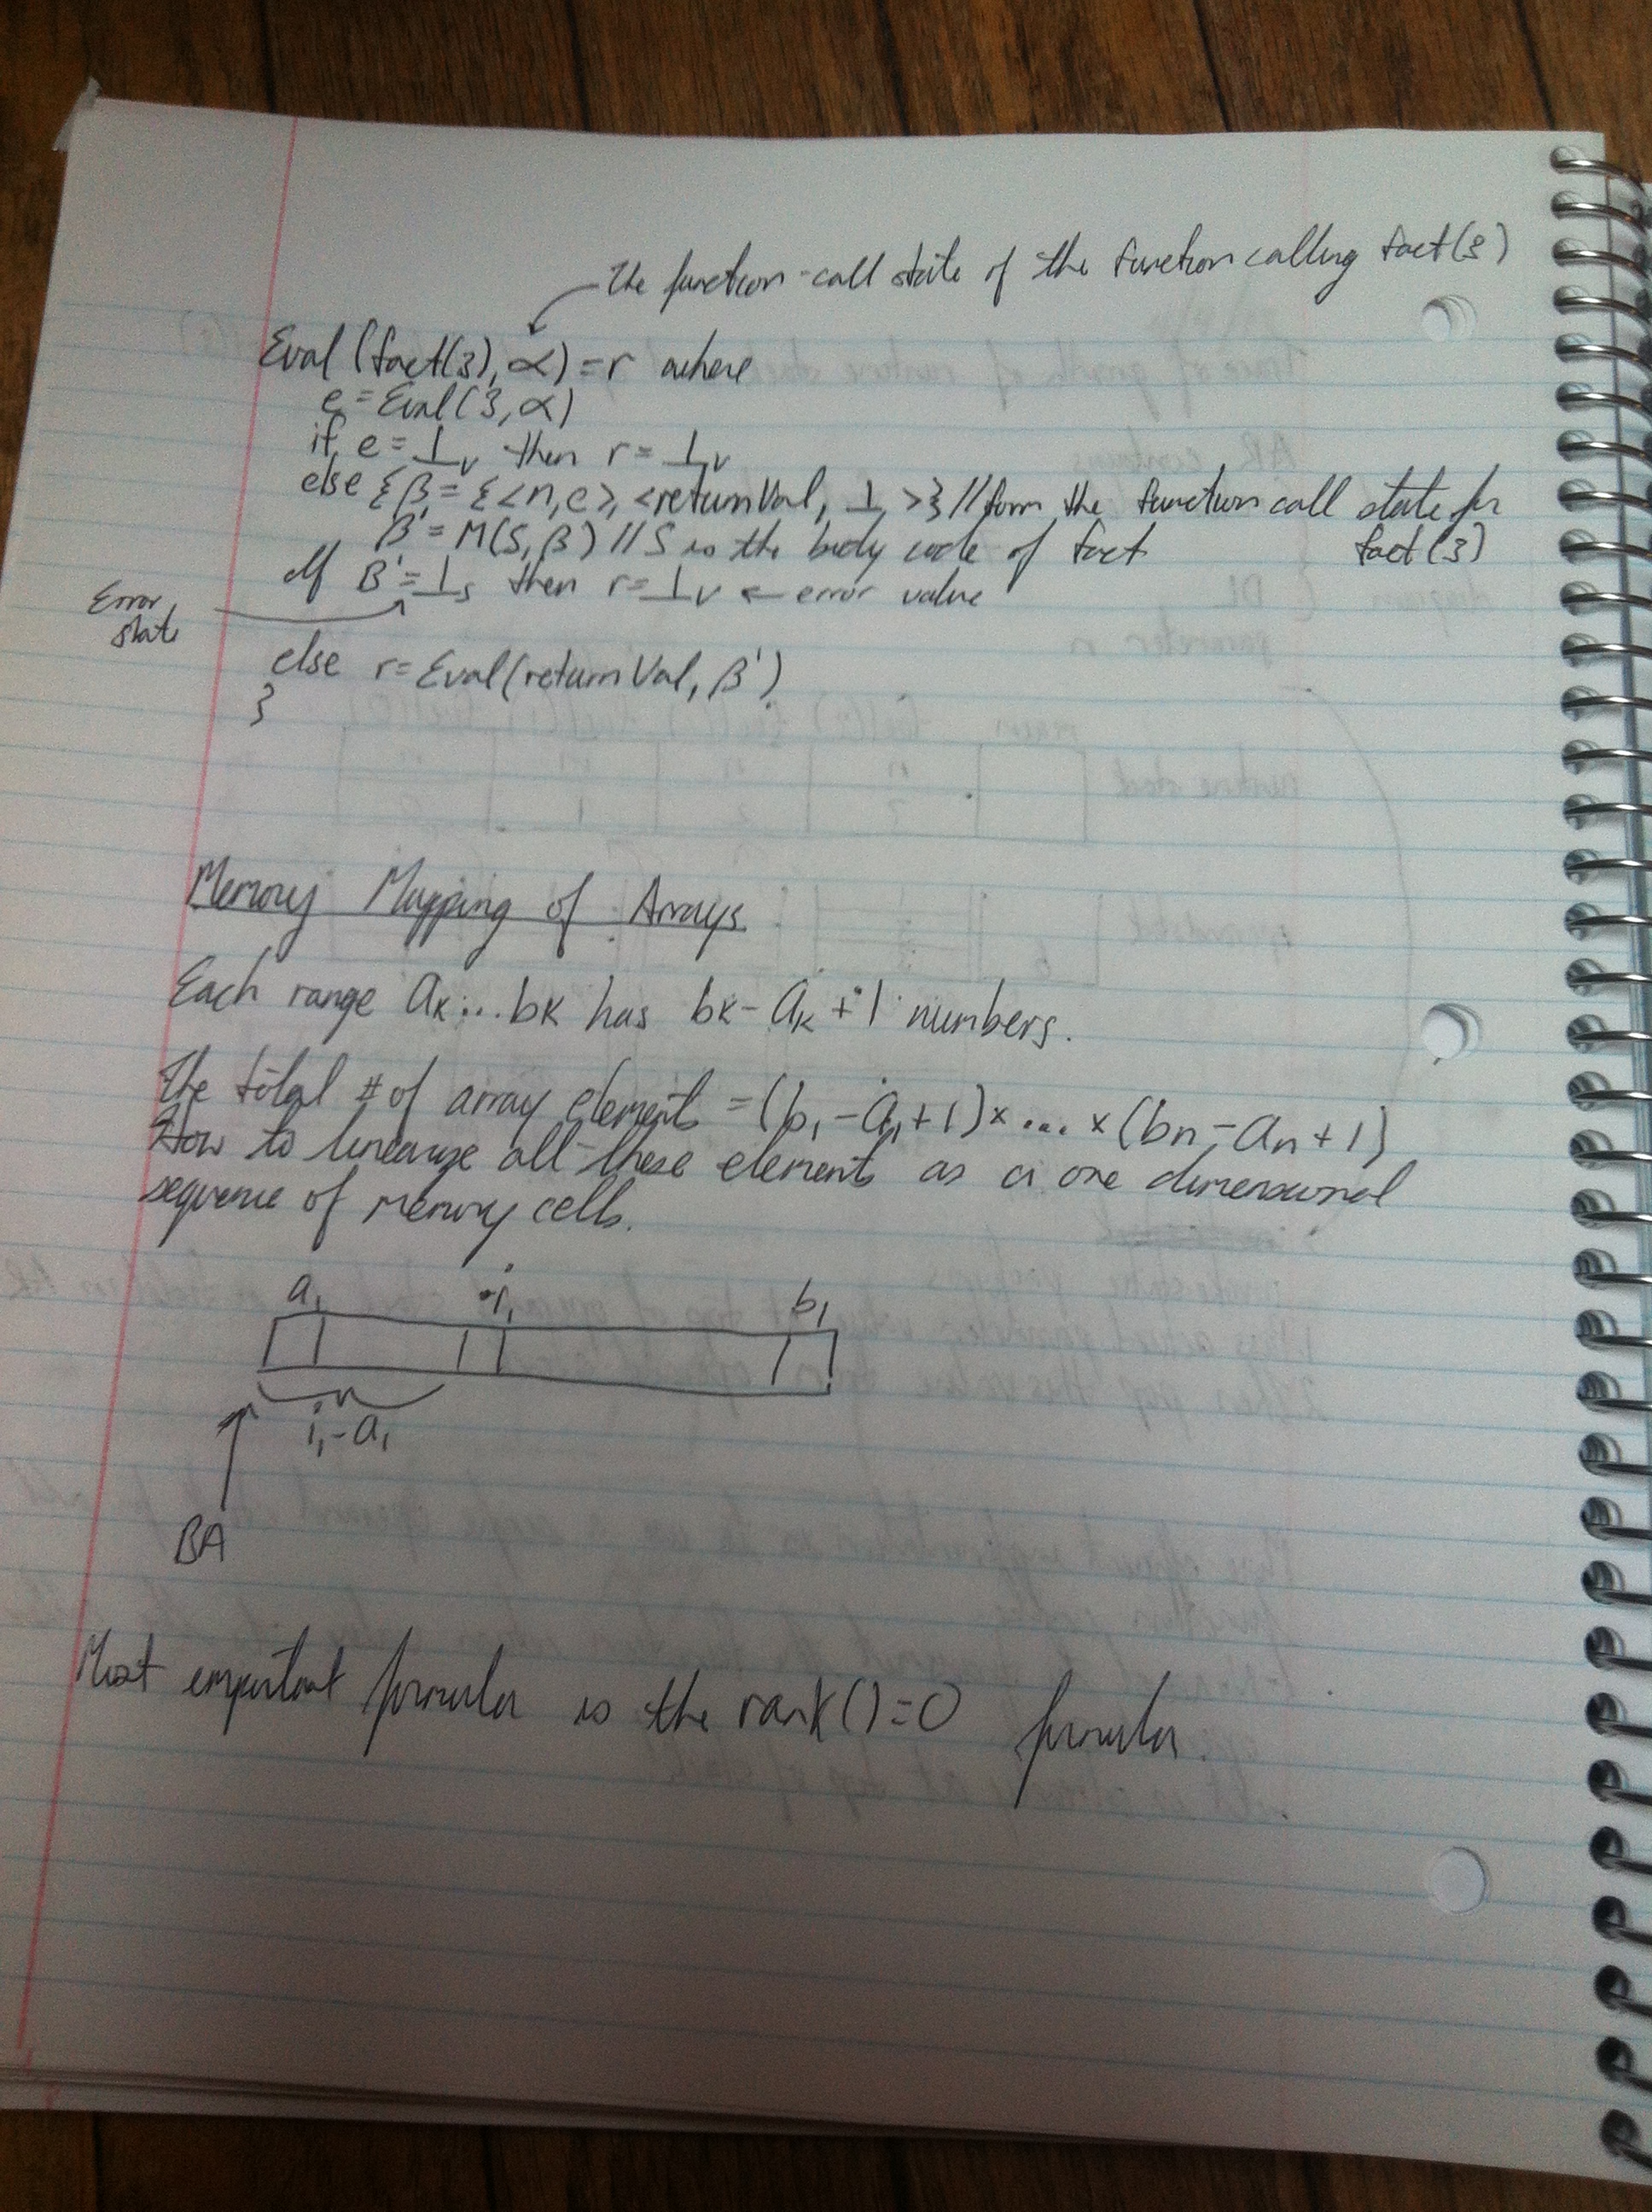 The function-call state of the function calling fact(3)
Eval(fact(3), α) = r where
e = Eval(3, α)
if e = ⊥v then r = ⊥v
else {β = {<n, e>, <returnVal, ⊥ >} // form the function call state for
fact(3)
β' = M(S, β) // S is the body code of fact
If β' = ⊥s then r = ⊥v ← error value
Error
state
else r = Eval(returnVal, β')
}
Memory Mapping of Arrays
Each range aₖ...bₖ has bₖ - aₖ + 1 numbers.
The total # of array elements = (b₁ - a₁ + 1) × ... × (bₙ - aₙ + 1)
How to linearize all these elements as a one dimensional
sequence of memory cells.
a₁ i₁ b₁
i₁ - a₁
BA
Most important formula is the rank() = 0 formula.